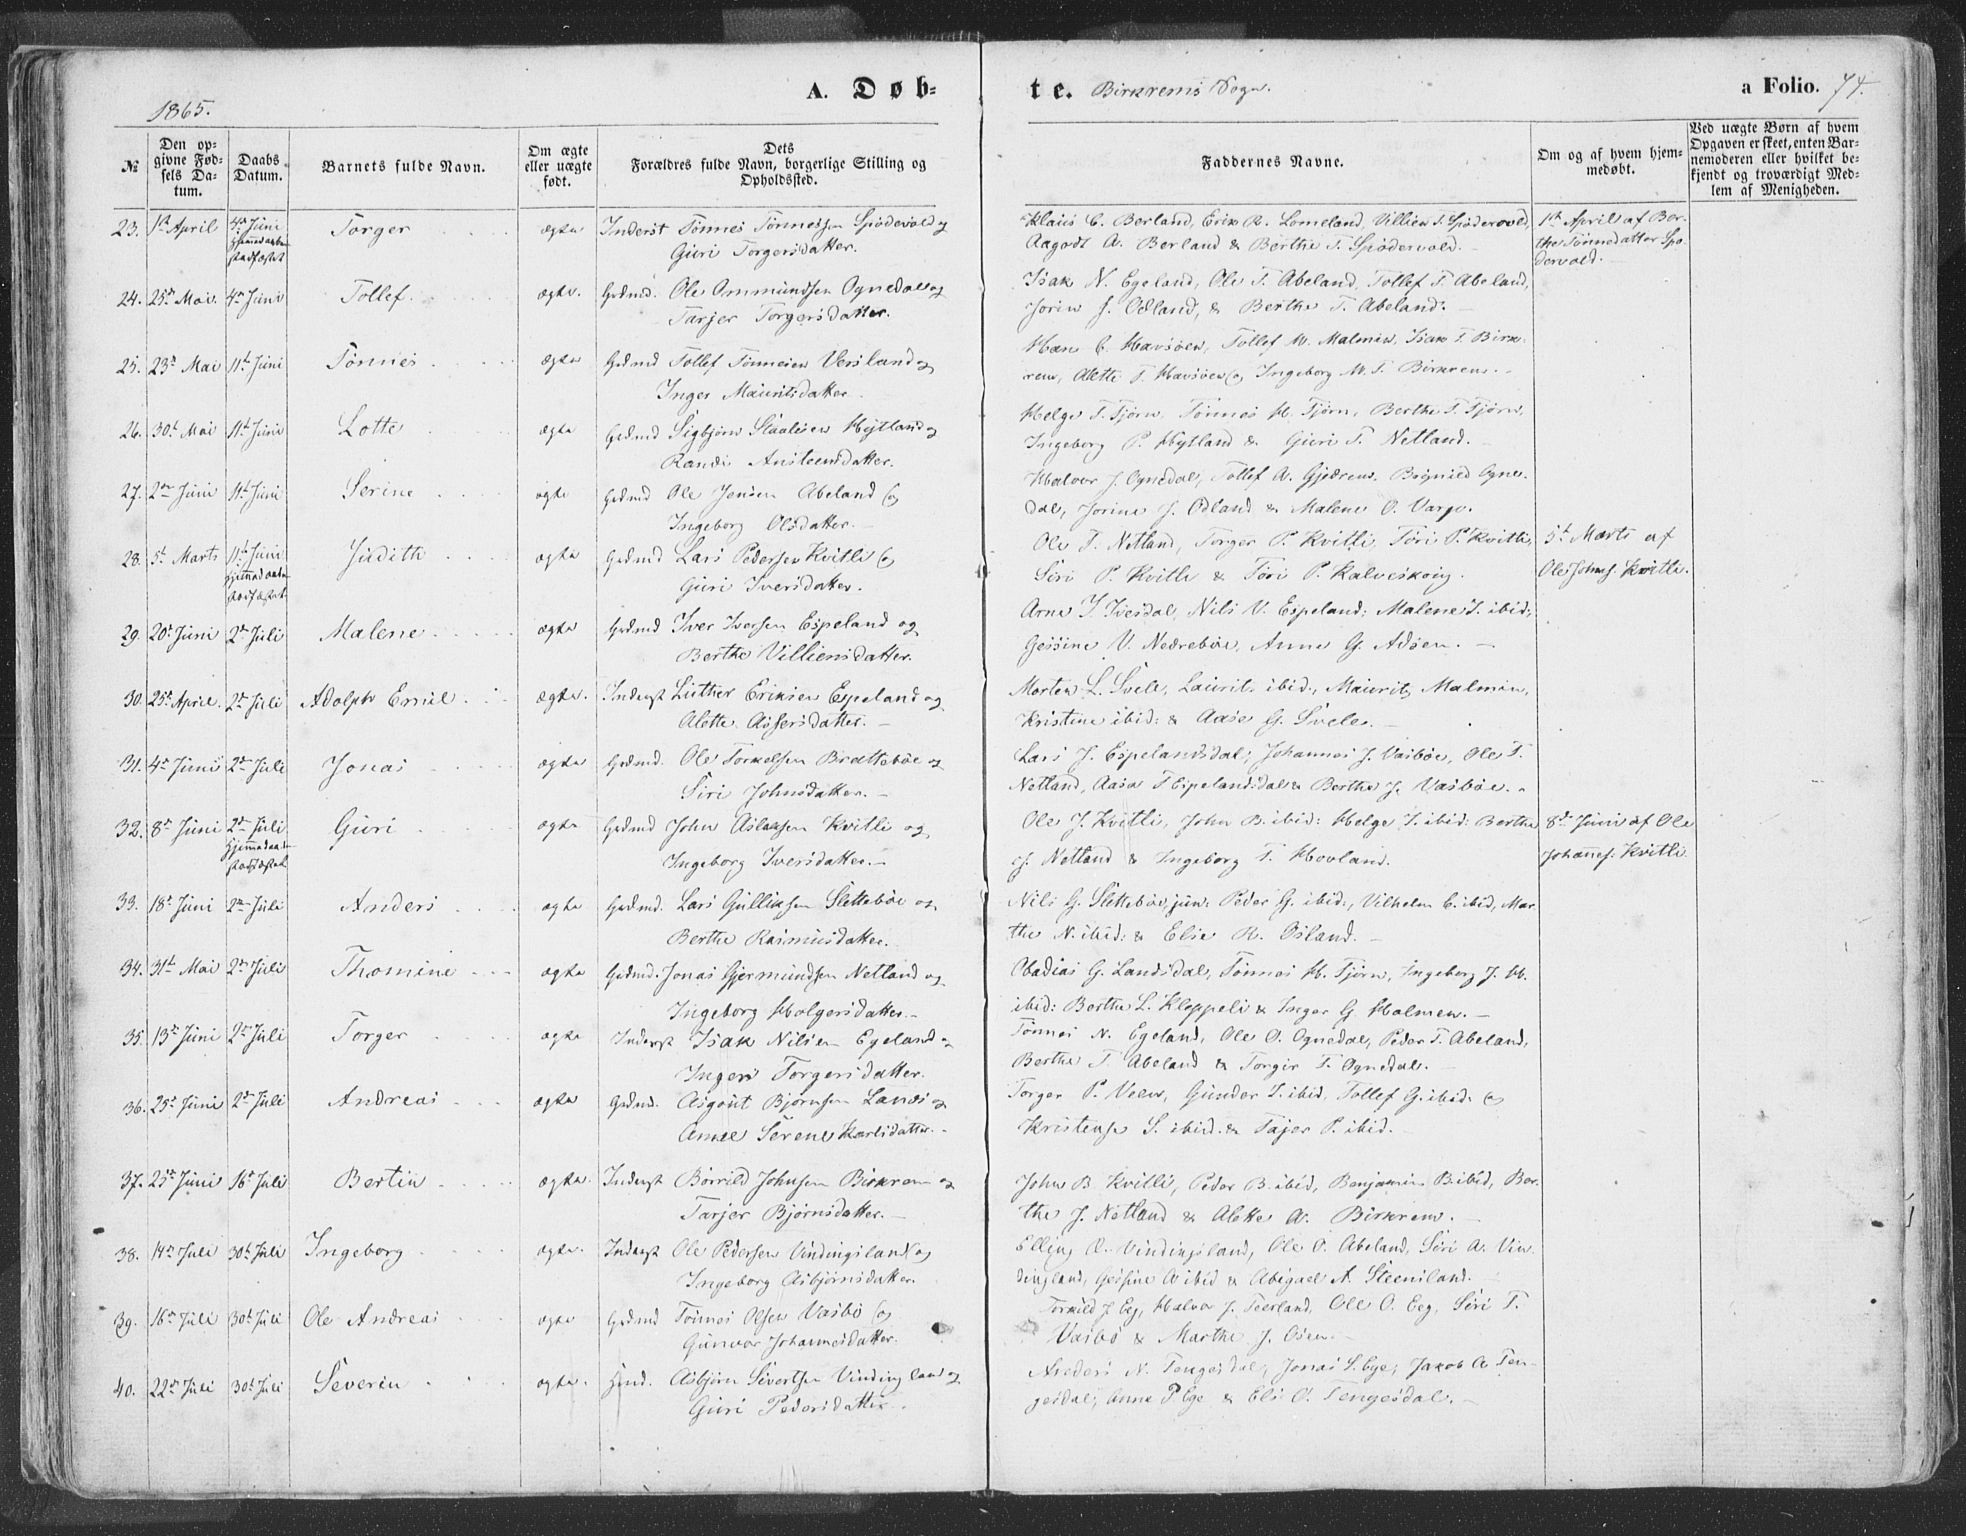 1865.
A. Døb-
te. Birkrems Sogn.
a Folio. 74.
№
Den op-
givne Fød-
sels Da-
tum.
Daabs
Datum.
Barnets fulde Navn.
Om ægte
eller uægte
født.
Dets
Forældres fulde Navn, borgerlige Stilling og
Opholdssted.
Faddernes Navne.
Om og af hvem hjem-
medøbt.
Ved uægte Børn af hvem
Opgaven er skeet, enten Bar-
nemoderen eller hvilket be-
kjendt og troværdigt Med-
lem af Menigheden.
23. 1st April 4de Juni Torger ægte Inderst Tönnes Tönnessen Spödervold og
Hjemmedaaben
stadfæstet
Guri Torgersdatter.
Klaus C. Berland, Erik R. Lomeland, Villien T. Spödervold,
Aagodt A. Berland & Berthe T. Spödervold.
1st April af Ber-
the Tönnesdatter Spö-
dervold.
24. 25de Mai 4de Juni Tollef ægte Grdmd. Ole Ommundsen Ognedal og
Tarjer Torgersdatter.
Isak N. Egeland, Ole T. Abeland, Tollef T. Abeland,
Jorin J. Ødland, & Berthe T. Abeland.
25. 23de Mai 11te Juni Tönnes ægte Grdmd Tollef Tönnesen Versland og
Inger Mauritsdatter.
Hans C. Havsöen, Tollef M. Malmin, Isak T. Birk-
rem, Alette T. Havsöen og Ingeborg M. T. Birkrem.
26. 30te Mai 11te Juni Lotte ægte Grdmd Sigbjörn Staalesen Hytland og
Randi Austeensdatter.
Helge T. Tjörn, Tönnes H. Tjörn, Berthe T. Tjörn,
Ingeborg P. Hytland & Guri T. Netland.
27. 2den Juni 11te Juni Serine ægte Grdmd Ole Jensen Abeland og
Ingeborg Olsdatter.
Halvor J. Ognedal, Tollef A. Gjedrem, Bögnild Ogne-
dal, Jorine J. Ødland & Malene O. Varpe.
28. 5te Marts 11te Juni Judith ægte Grdmd Lars Pedersen Kvitli og
Hjemmedaaben
stadfæstet
Guri Iversdatter.
Ole T. Netland, Torger P. Kvitli, Töri P. Kvitli,
Siri P. Kvitli & Töri P. Kalveskvig.
5te Marts af
Ole Johns. Kvitli.
29. 20de Juni 2den Juli Malene ægte Grdmd Iver Iversen Espeland og
Berthe Villiensdatter.
Arne I. Ivesdal, Nils V. Espeland, Malene I. ibid;
Gessine V. Nedreböe, Anne G. Adsen.
30. 25de April. 2den Juli Adolph Emil ægte Inderst Luther Eriksen Espeland og
Alette Assersdatter.
Morten L. Svele, Laurits ibid., Maurits Malmin,
Kristine ibid: & Aase G. Svele.
31. 4de Juni 2den Juli Jonas ægte Grdmd. Ole Torkelsen Bratteböe og
Siri Johnsdatter.
Lars J. Espelandsdal, Johannes J. Vasböe, Ole T.
Netland, Aasa T Espelandsdal & Berthe J. Vasböe.
32. 8de Juni 2den Juli Guri ægte Grdmd John Aslaksen Kvitli og
Hjemmedaaben
stadfæstet
Ingeborg Iversdatter.
Ole J. Kvitli, John B. ibid: Helge I. ibid: Berthe
J. Netland & Ingeborg T. Hovland.
8de Juni af Ole
Johannes. Kvitli.
33. 18de Juni 2den Juli Anders ægte Grdmd. Lars Gulliksen Sletteböe og
Berthe Rasmusdatter.
Nils G. Sletteböe, jun: Peder G. ibid:, Vilhelm C. ibid, Mar-
the N. ibid: & Elise R. Osland.
34. 31te Mai 2den Juli Thomine ægte Grdmd. Jonas Gjermundsen Netland og
Ingeborg Holgersdatter.
Obadias G. Landsdal, Tönnes H. Tjörn, Ingeborg J. H.
ibid: Berthe L. Kleppeli & Inger G. Holmen.
35. 13de Juni 2den Juli Torger ægte Inderst Isak Nilsen Egeland og
Inger Torgersdatter.
Tönnes N. Egeland, Ole O. Ognedal, Peder T. Abeland,
Berthe T. Abeland & Torgir T. Ognedal.
36. 25de Juni 2den Juli Andreas ægte Grdmd. Asgout Bjornsen Lands og
Anne Serene Karlsdatter.
Torger P. Veen, Gunder S. ibid, Tollef G. ibid: og
Kristense S. ibid. & Tajer P. ibid.
37. 25de Juni 16de Juli Bertin ægte Inderst Börrild Johnsen Birkrem og
Tarjer Bjornsdatter.
John B. Kvitli, Peder B. ibid, Benjamin B. ibid, Ber-
the J. Netland & Alette A. Birkrem.
38. 14de Juli 30te Juli Ingeborg ægte. Inderst Ole Pedersen Vindingsland og
Ingeborg Asbjörnsdatter.
Elling O. Vindingsland, Ole O. Abeland, Siri A. Vin-
dingland, Gesine A ibid & Abigael A. Steensland.
39. 16de Juli 30te Juli Ole Andreas ægte Grdmd Tönnes Olsen Vasbö og
Gunvor Johannesdatter.
Torkild J. Eeg, Halvor J. Teerland, Ole O. Eeg, Siri T.
Vasbö & Marthe J. Osen.
40. 22den Juli 30te Juli Severin ægte. Husmd. Asbjörn Sivertsen Vindingland og
Guri Pedersdatter.
Anders N. Tengesdal, Jonas S. Ege, Jakob A Ten-
gesdal, Anne P Ege & Eli O. Tengesdal.